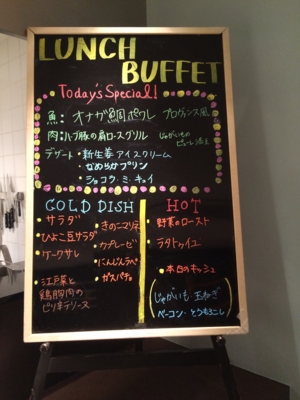 LUNCH
BUFFET
Today's Special!
魚: オナガ鯛ポワレ プロヴァンス風
肉:ハーブ豚の肩ロースグリル じゃがいもの
ピューレ添え
デザート・新生姜アイスクリーム
・なめらかプリン
・ショコラ・ミ・キュイ
COLD DISH
・サラダ
・ひよこ豆サラダ
・ケークサレ
・江戸菜と
鶏胸肉の
ピリ辛テリーヌ
・きのこマリネ
・カプレーゼ
・にんじんラペ
・ガスパチョ
HOT
・野菜のロースト
・ラタトゥイユ
・本日のキッシュ
(じゃがいも 玉ねぎ
ベーコン・とうもろこし)